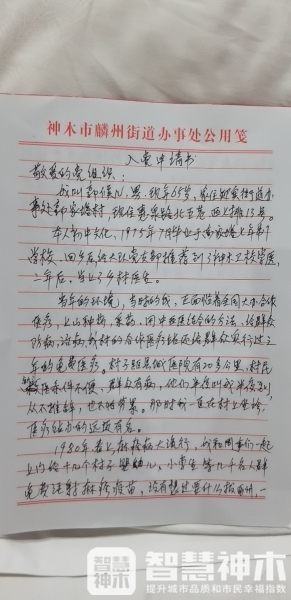 神木市麟州街道办事处公用笺
入党申请书
敬爱的党组织：
我叫郭侯儿，男，现年65岁，家住麟州街道办
事处郭家塔村，现住惠泉路北五巷西七排13号。
本人初中文化，1975年7月毕业于
学校，回乡后经大队党支部推荐到神木卫校学医，
二年后，当上了乡村医生。
当年的环境，当时的我，正面临着全国大办合作
医疗，上山种药，采药，用中西医结合的方法，给群众
防病，治病，我村的合作医疗站还给群众实行过三
年的免费医疗。村子距县城医院有20多公里，村民
就医条件不便，群众有病，他们半夜叫我半夜到，
从不推辞，也不怕劳累。那时我一直在村上坚守，
医疗站办的远近有名。
1980年春上麻疹病大流行，我和同事们一起
上门给十几个村子婴幼儿，小学生等几千名人群
免费注射麻疹疫苗，没有想过要什么报酬，一
智慧神木
提升城市品质和市民幸福指数